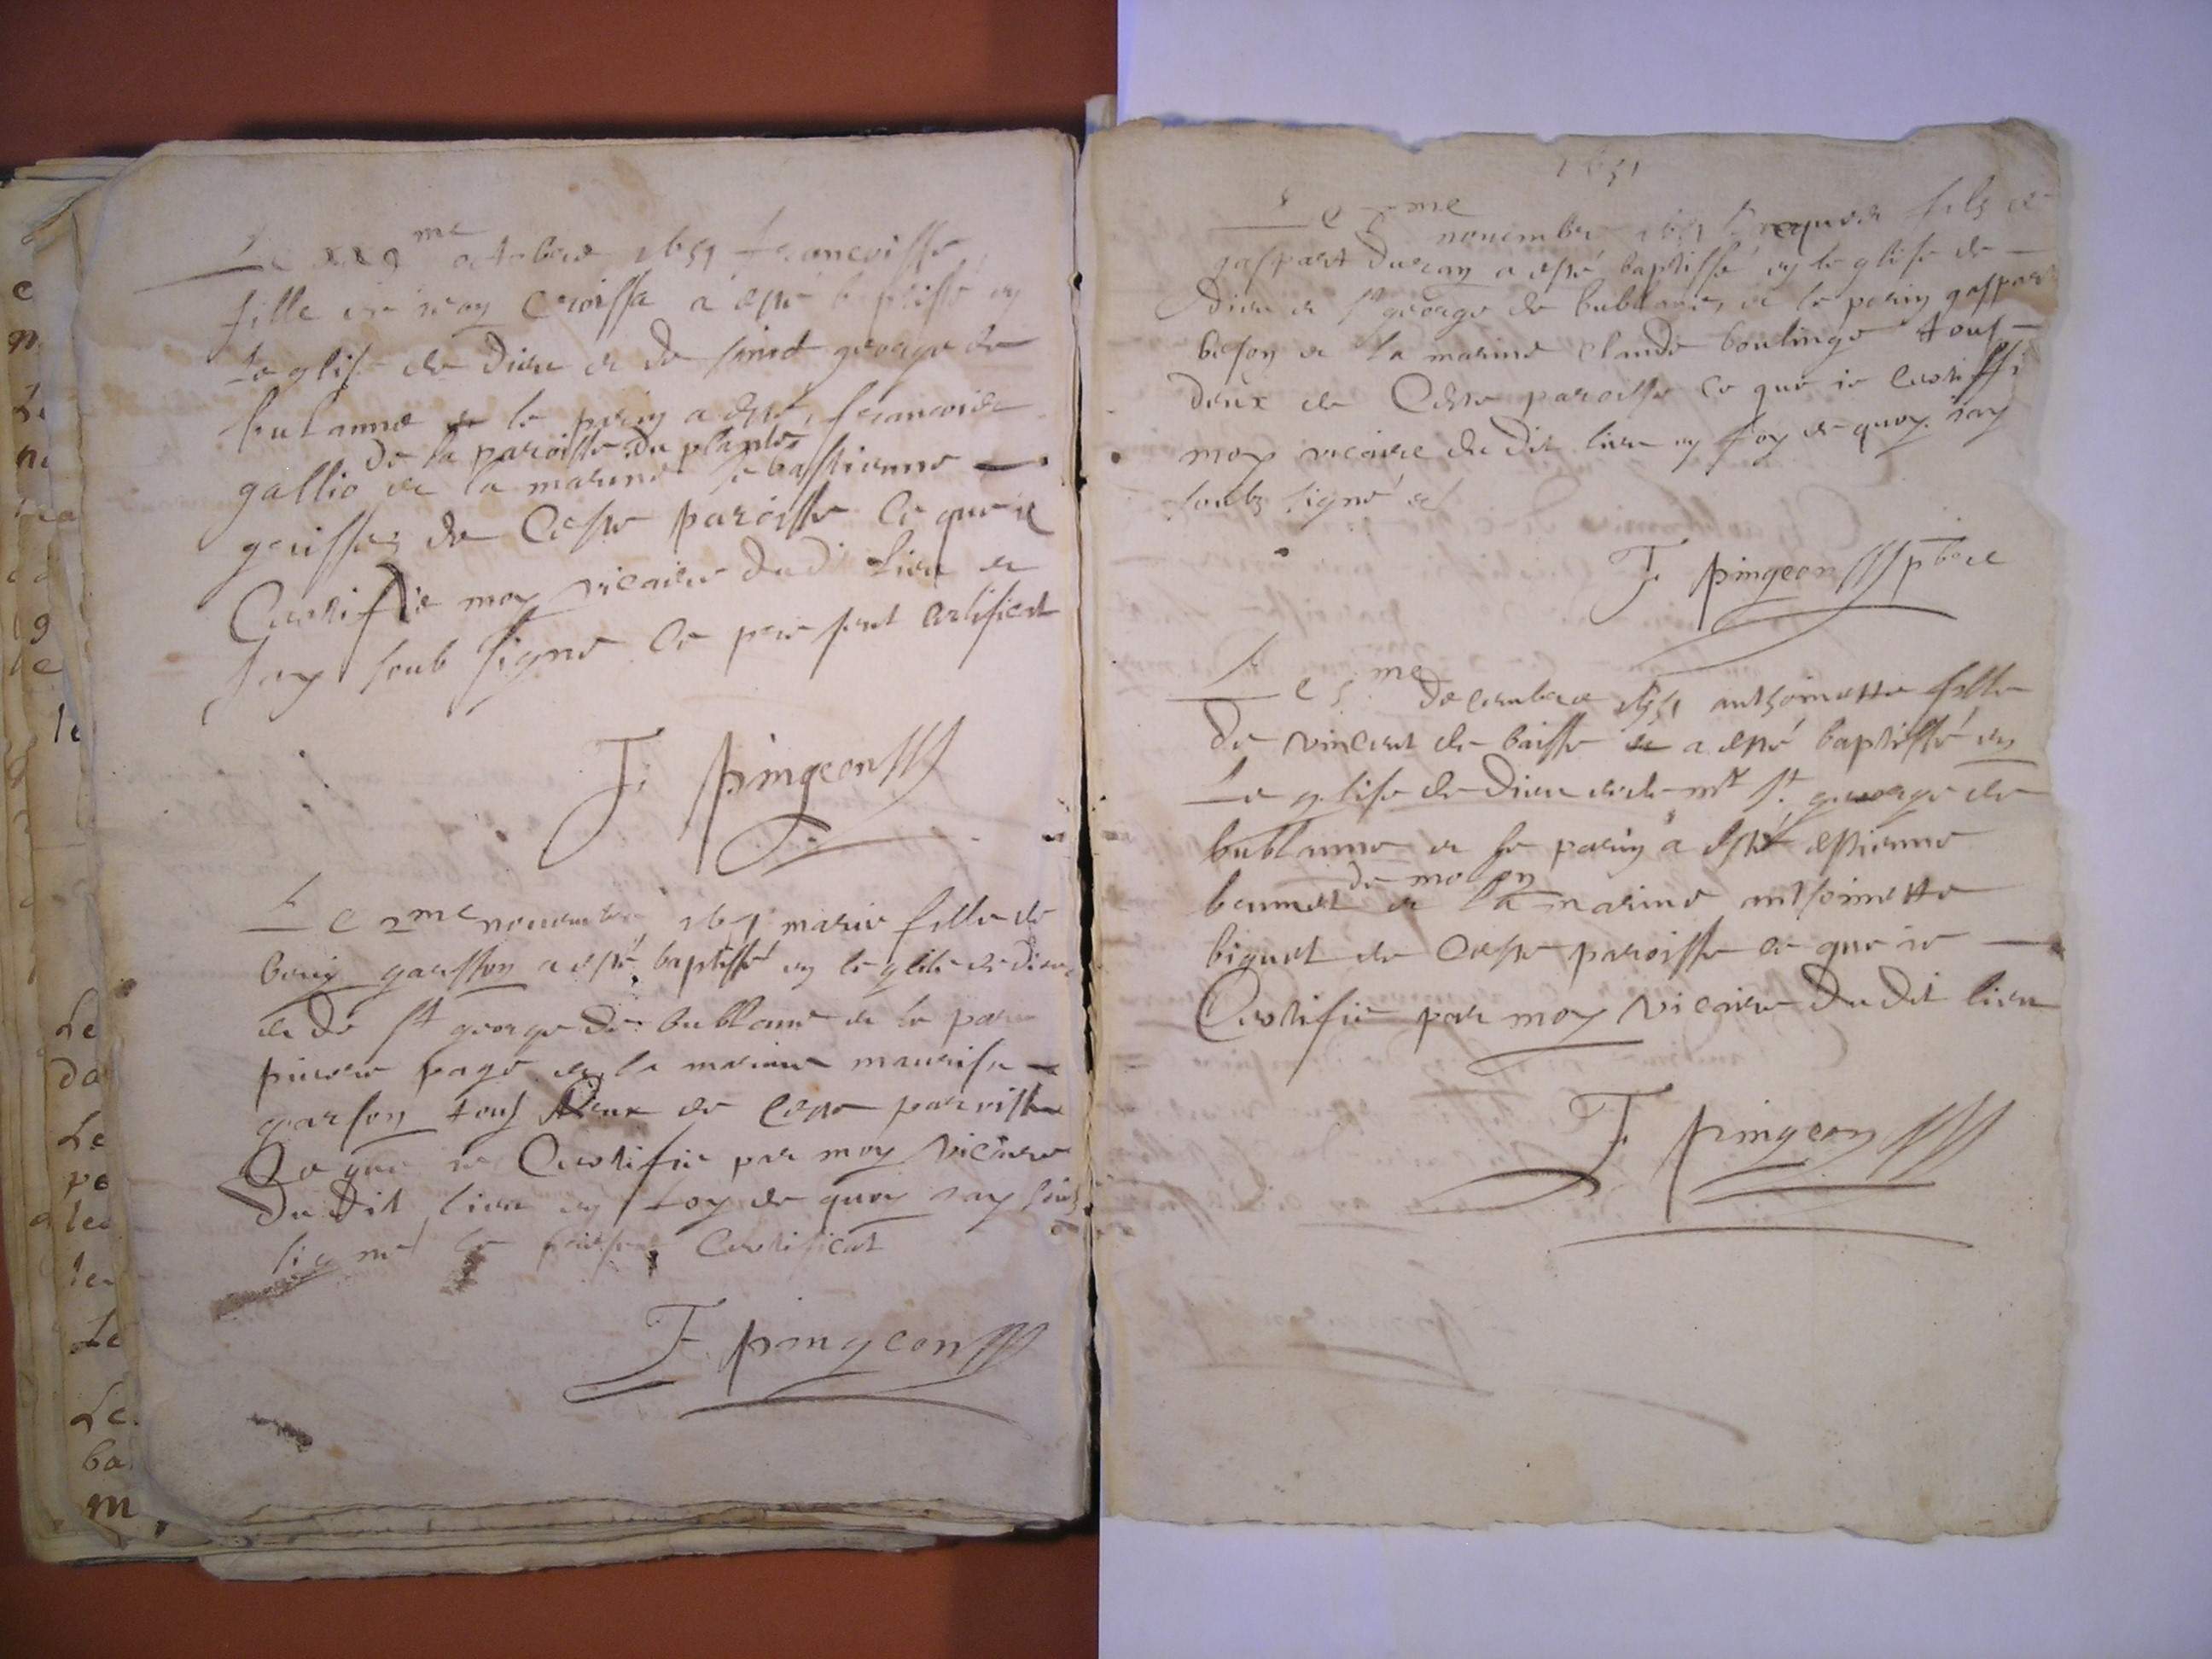 e
m
Le
g
le
Le
da
Le
pe
a les
les
Le
Le
ba
m
Le me octobre 1651 francoisse
fille de croissa a esté baptissé en
leglise de dieu et de sainct george de
bublanne et le parin a esté francois
de la paroisse du plantes
gallio et la marine sebastienne
de ceste paroisse ce que ie
Certifie moy vicaire dud lieu et
jay soub signé le present certificat
F. pingeon
Le 2me novembre 1651 marie fille de
garsson a esté baptissé en leglise de dieu
et de st george de bublanne et le parin
pierre page et la marine maurise
garson tous deux de ceste paroisse
Ce que ie Certifie par moy vicaire
du dit lieu en foy de quoy iay soubz
signé le present Certificat
F. pingeon
1651
Le me novembre 1651 fils de
gaspart duran a esté baptissé en leglise de
dieu et st george de bublanne, et le parin gaspar
beson et la marine claude boulinge tous
deux de Ceste paroisse ce que ie certiffi
moy vicaire du dit lieu en foy de quoy iay
soubz signé
F. pingeon pbre
Le 5me decembre 1651 anthoinette fille
de vincent de baisse et a esté baptissé en
Leglise de dieu et de mr st. george de
bublanne et le parin a esté estienne
de molon
bennet et la marine anthoinette
biguet de ceste paroisse ce que ie
Certifie par moy vicaire du dit lieu
F. pingeon